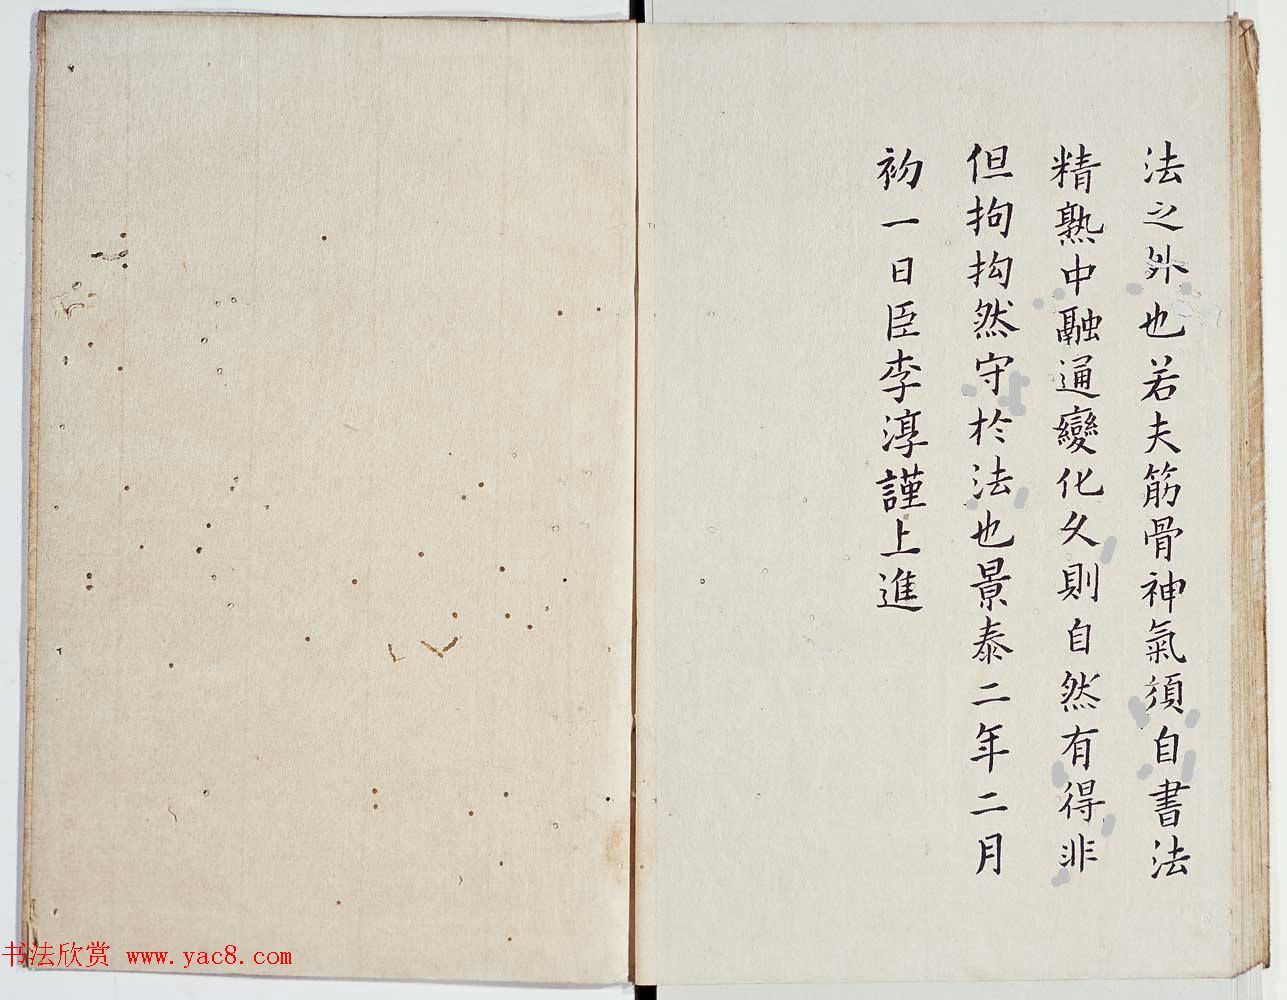 法之外也若夫筋骨神氣須自書法
精熟中融通變化久則自然有得非
但拘拘然守於法也景泰二年二月
初一日臣李淳謹上進
书法欣赏 www.yac8.com